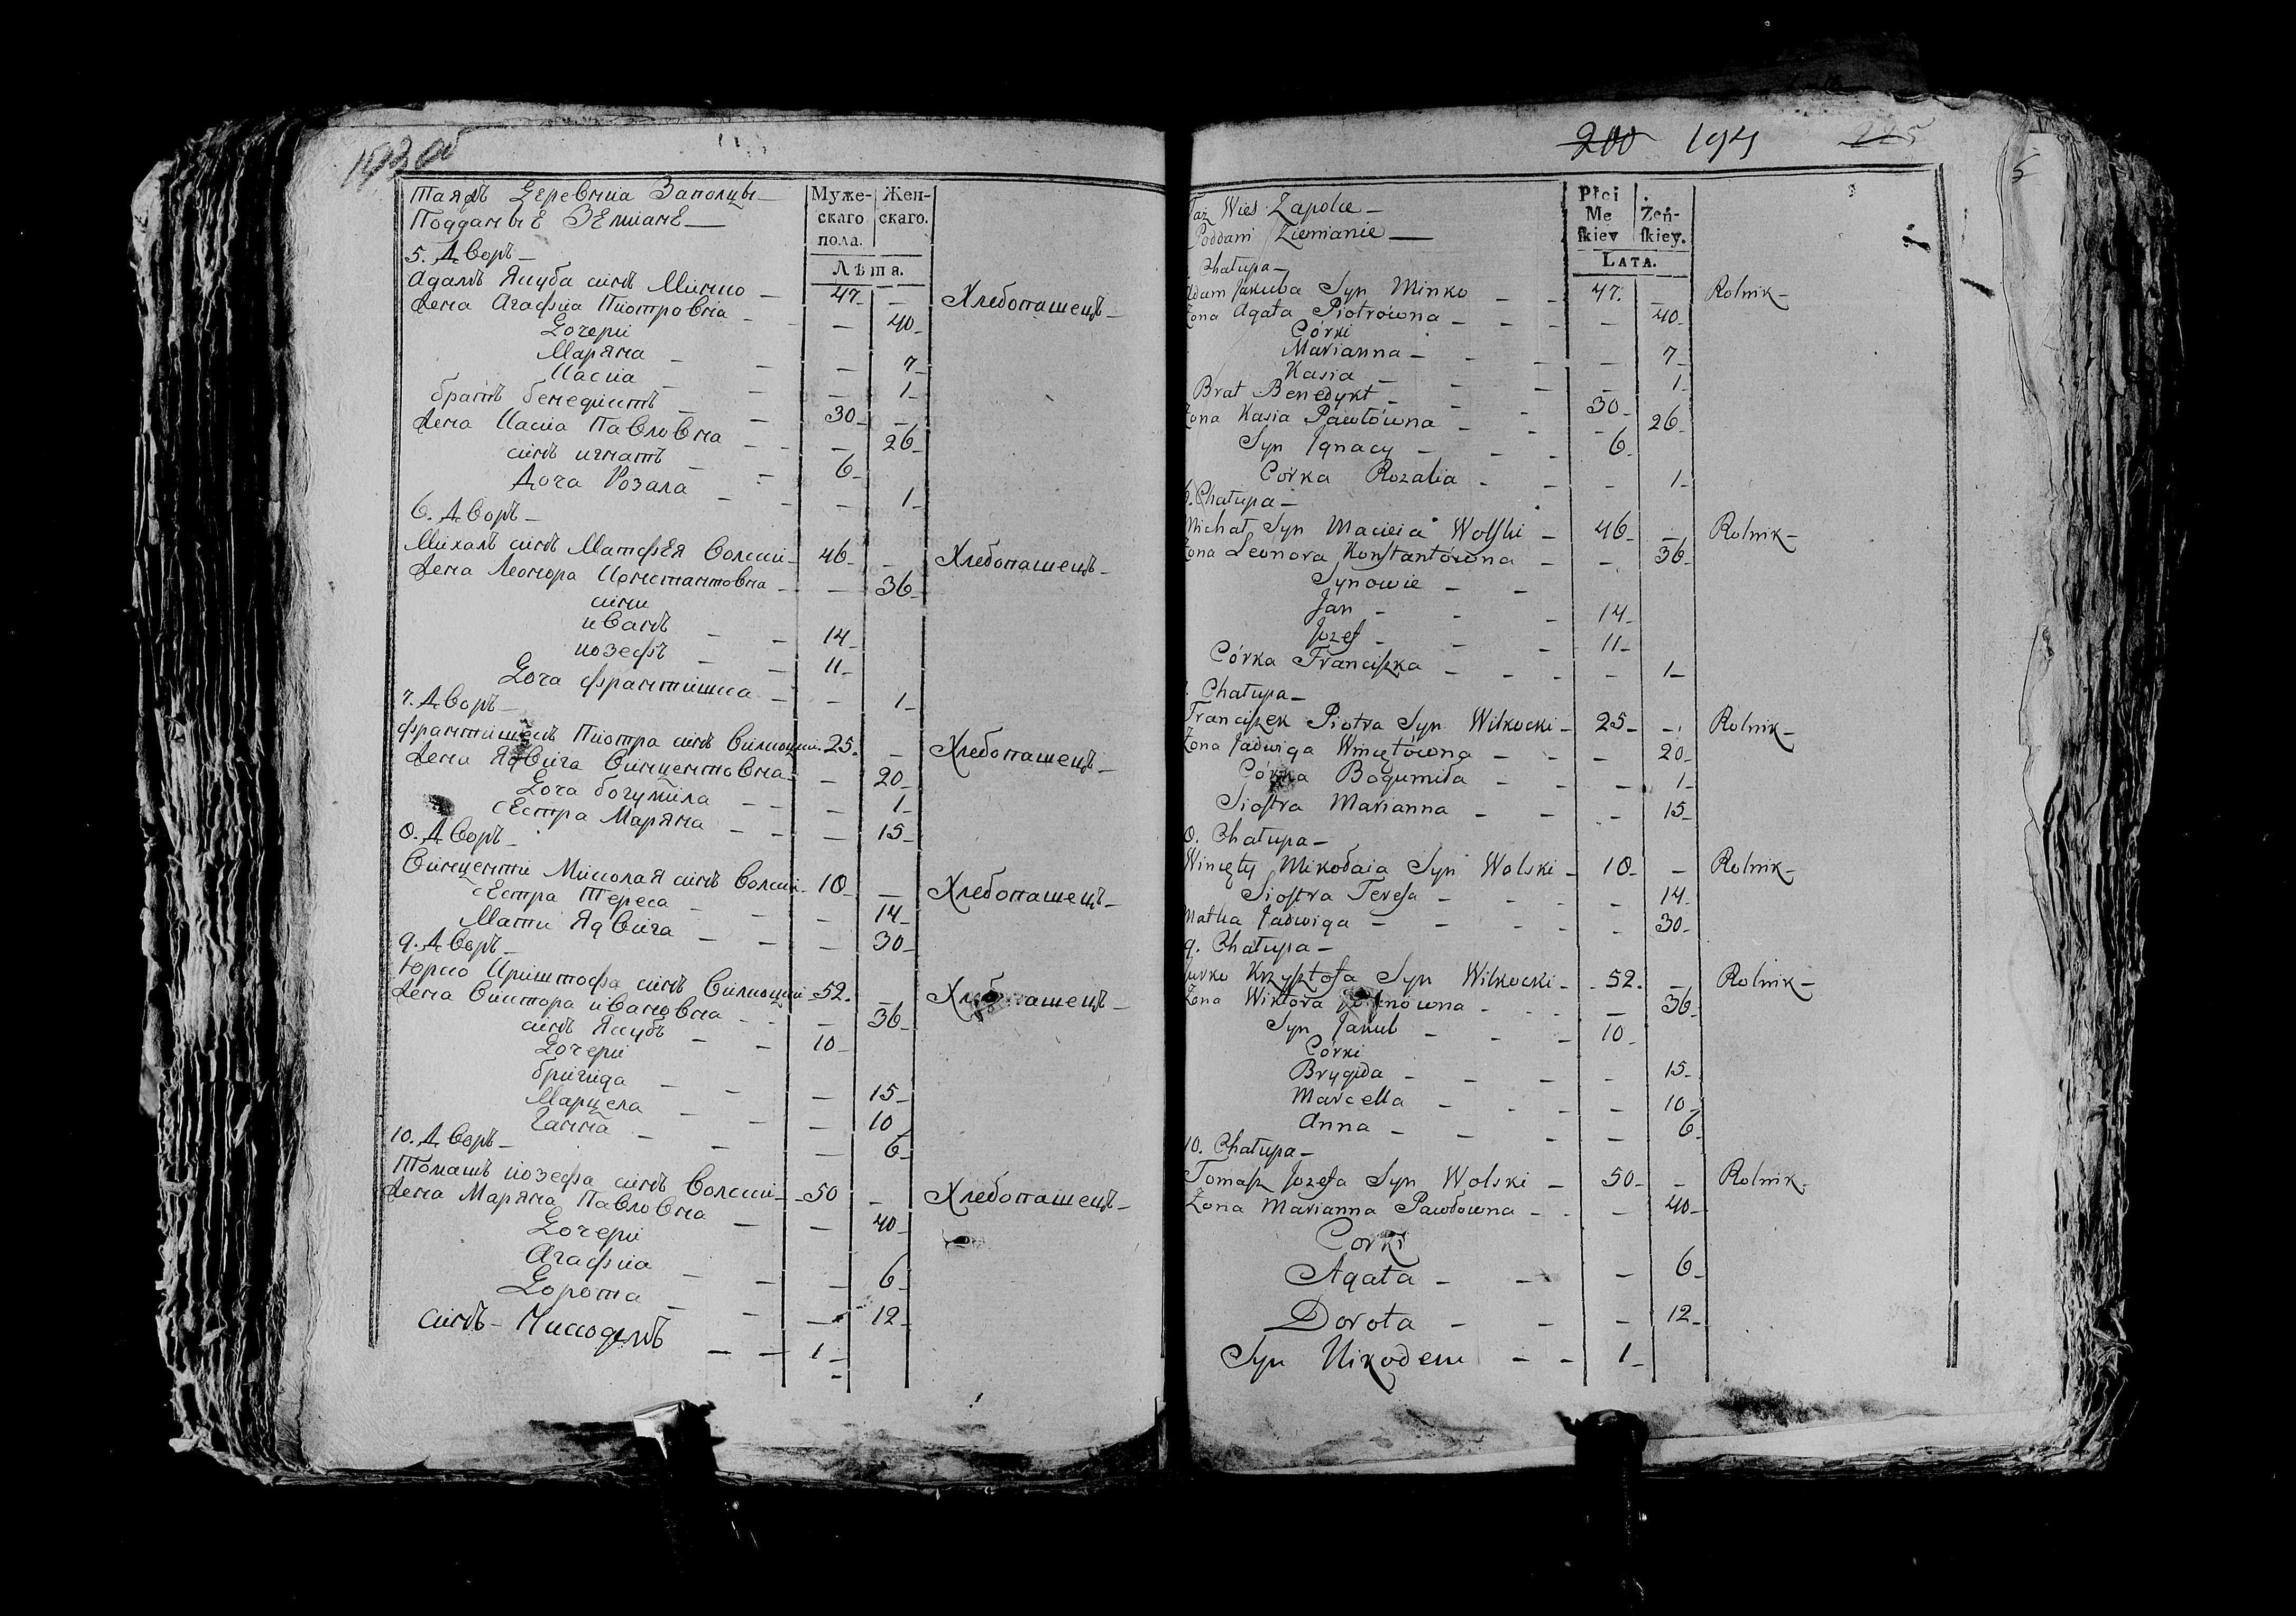 192 об
Таяжъ Деревниа Заполцы
Подданые Земиане
Муже-
скаго
пола.
Жен-
скаго.
Лѣта.
5. Дворъ
Адамъ Якуба синъ Минко 47 Хлебопашецъ
Жена Агафиа Пиотровна 40
Дочери
Марянa 7
Касиа 1
братъ бенедиктъ 30
Жена Касиа Павловна 26
синъ игнатъ 6
Доча Розала 1
6. Дворъ
Михалъ синъ Матфея Волски 46 Хлебопашецъ
Жена Леонора Константовна 36
сини
иванъ 14
иозефъ 11
Доча франтишка 1
7. Дворъ
франтишекъ Пиотра синъ Вилкоцки 25 Хлебопашецъ
Жена Ядвига Винцентовна 20
Доча богумила 1
сестра Маряна 15
8. Дворъ
Винценти Миколая синъ Волски 18 Хлебопашецъ
сестра Тереса 14
Мати Ядвига 30
9. Дворъ
Юрко Криштофа синъ Вилкоцки 52 Хлебопашецъ
Жена Виктора ивановна 36
синъ Якубъ 10
Дочери
бригида 15
Марцела 10
Ганна 6
10. Дворъ
Томашъ иозефа синъ Волски 50 Хлебопашецъ
Жена Маряна Павловна 40
Дочери
Агафиа 6
Дорота 12
синъ Никодемъ 1
200 194 225
Taż Wieś Zapolce
Poddani Ziemianie
Płci
Mę
skiey
Żeń-
skiey.
LATA.
Chałupa
Adam Jakuba Syn Minko 47 Rolnik
Żona Agata Piotrówna 40
Córki
Marianna 7
Kasia 1
Brat Benedykt 30
Żona Kasia Pawłówna 26
Syn Ignacy 6
Córka Rozalia 1
6. Chałupa
Michał Syn Macieia Wolski 46 Rolnik
Żona Leonora Konstantówna 36
Synowie
Jan 14
Jozef 11
Córka Franciszka 1
Chałupa
Franciszek Piotra Syn Wilkocki 25 Rolnik
Żona Jadwiga Winctówna 20
Córka Bogumiła 1
Siostra Marianna 15
8. Chałupa
Wincęty Mikołaia Syn Wolski 18 Rolnik
Siostra Teresa 14
Matka Jadwiga 30
9. Chałupa
Jurko Krzysztofa Syn Wilkocki 52 Rolnik
Żona Wiktora 36
Syn Jakub 10
Córki
Brygida 15
Marcella 10
Anna 6
10. Chałupa
Tomasz Jozefa Syn Wolski 50 Rolnik
Żona Marianna Pawłowna 40
Corki
Agata 6
Dorota 12
Syn Nikodem 1